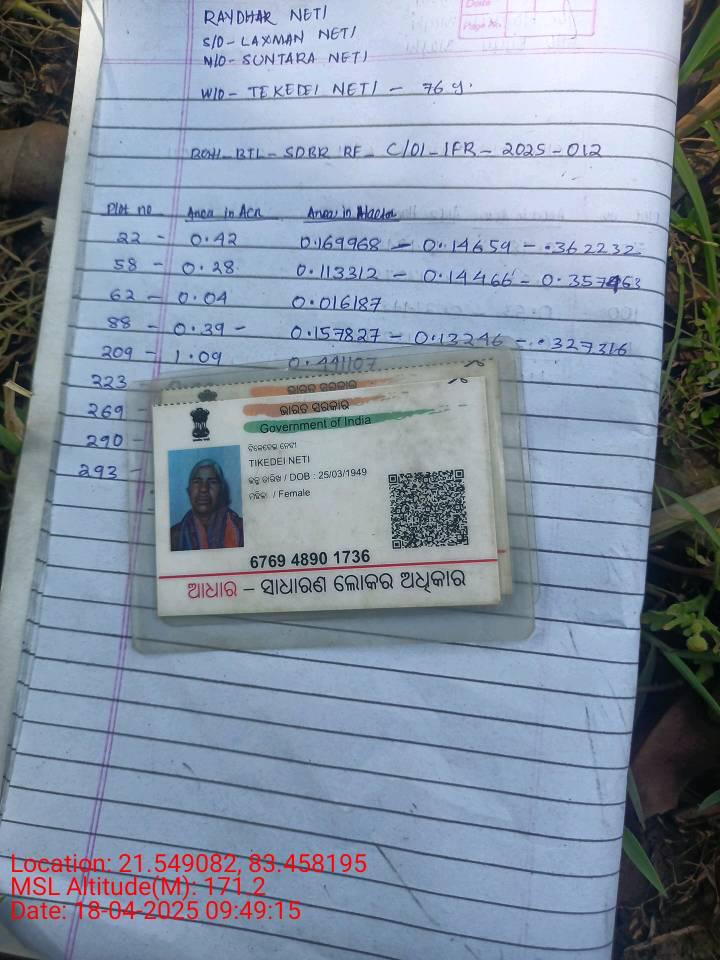 Date
Page No.
RAYDHAR NETI
S/O- LAXMAN NETI
M/O- SUNTARA NETI
W/O- TEKEDEI NETI - 76 y.
BTL- SDBR RF- C/01- IFR- 2025-012
Plot no Area in Acr Area in
22 - 0.42 0.169968 - 0.14659 - .362232
58 - 0.28 0.113312 - 0.14466 - 0.357463
62 - 0.04 0.016187
88 - 0.39 - 0.157827 - 0.13246 - .327316
209 - 1.09 0.441107
223
269
290 -
293 -
ଭାରତ ସରକାର
ଭାରତ ସରକାର
Government of India
ଟିକେଦେଇ ନେଟୀ
TIKEDEI NETI
ଜନ୍ମ ତାରିଖ / DOB : 25/03/1949
ମହିଳା / Female
6769 4890 1736
ଆଧାର – ସାଧାରଣ ଲୋକର ଅଧିକାର
Location: 21.549082, 83.458195
MSL Altitude(M): 171.2
Date: 18-04-2025 09:49:15